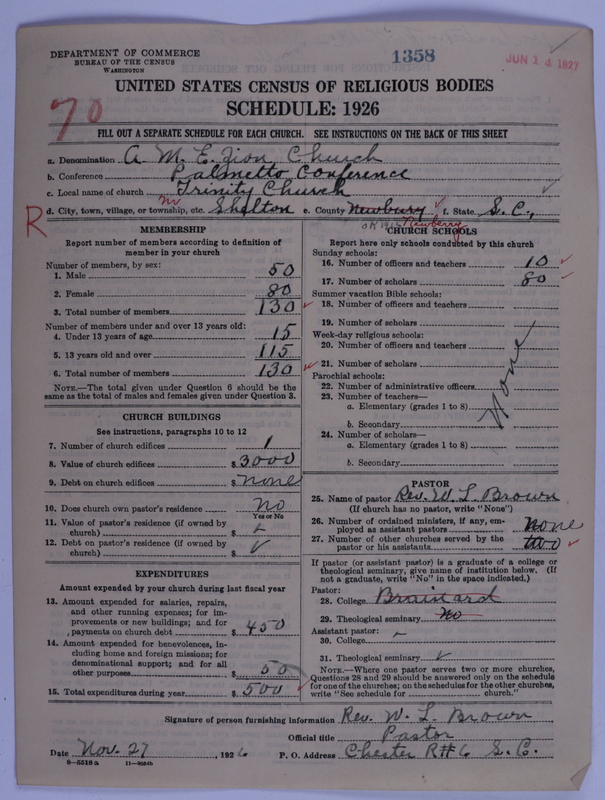 DEPARTMENT OF COMMERCE
BUREAU OF THE CENSUS
WASHINGTON
1358
JUN 14 1927
UNITED STATES CENSUS OF RELIGIOUS BODIES
SCHEDULE: 1926
70
FILL OUT A SEPARATE SCHEDULE FOR EACH CHURCH. SEE INSTRUCTIONS ON THE BACK OF THIS SHEET
a. Denomination A. M. E. Zion Church
b. Conference Palmetto Conference
c. Local name of church Trinity Church
R
d. City, town, village, or township, etc. nr Shelton e. County Newbury f. State S. C.,
Newberry
MEMBERSHIP
Report number of members according to definition of
member in your church
Number of members, by sex:
1. Male 50
2. Female 80
3. Total number of members 130
Number of members under and over 13 years old:
4. Under 13 years of age 15
5. 13 years old and over 115
6. Total number of members 130
NOTE.—The total given under Question 6 should be the
same as the total of males and females given under Question 3.
CHURCH BUILDINGS
See instructions, paragraphs 10 to 12
7. Number of church edifices 1
8. Value of church edifices $ 3000
9. Debt on church edifices $ none
10. Does church own pastor's residence No
Yes or No
11. Value of pastor's residence (if owned by
church) $
12. Debt on pastor's residence (if owned by
church) $
EXPENDITURES
Amount expended by your church during last fiscal year
13. Amount expended for salaries, repairs,
and other running expenses; for im-
provements or new buildings; and for
payments on church debt $ 450
14. Amount expended for benevolences, in-
cluding home and foreign missions; for
denominational support; and for all
other purposes $ 50
15. Total expenditures during year $ 500
CHURCH SCHOOLS
Report here only schools conducted by this church
Sunday schools:
16. Number of officers and teachers 10
17. Number of scholars 80
Summer vacation Bible schools:
18. Number of officers and teachers
19. Number of scholars
Week-day religious schools:
20. Number of officers and teachers
21. Number of scholars
Parochial schools:
22. Number of administrative officers
23. Number of teachers—
a. Elementary (grades 1 to 8)
b. Secondary
24. Number of scholars—
a. Elementary (grades 1 to 8)
b. Secondary
None
PASTOR
25. Name of pastor Rev. W. L. Brown
(If church has no pastor, write "None")
26. Number of ordained ministers, if any, em-
ployed as assistant pastors none
27. Number of other churches served by the
pastor or his assistants two
If pastor (or assistant pastor) is a graduate of a college or
theological seminary, give name of institution below. (If
not a graduate, write "No" in the space indicated.)
Pastor:
28. College Brainard
29. Theological seminary No
Assistant pastor:
30. College
31. Theological seminary
NOTE.—Where one pastor serves two or more churches,
Questions 28 and 29 should be answered only on the schedule
for one of the churches; on the schedules for the other churches,
write "See schedule for church."
Signature of person furnishing information Rev. W. L. Brown
Official title Pastor
Date Nov. 27 1926 P. O. Address Chester R#6 S. C.
8—5518a